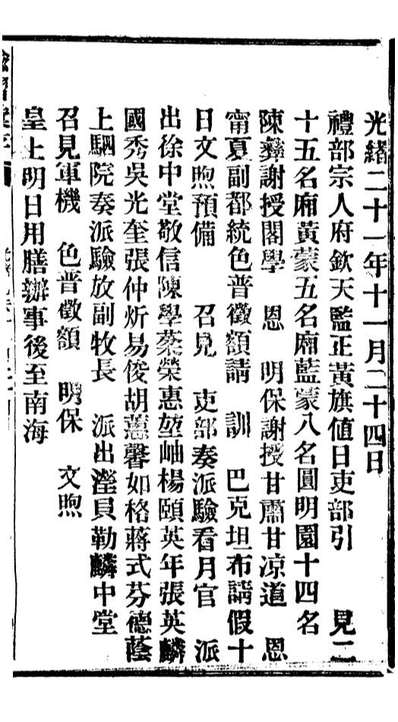 光緒二十一年十一月二十四日
禮部宗人府欽天監正黃旗值日吏部引 見二
十五名廂黃蒙五名廂藍蒙八名圓明園十四名
陳彝謝授閣學 恩 明保謝授甘肅甘凉道 恩
甯夏副都統色普徵額請 訓 巴克坦布請假十
日文煦預備 召見 吏部奏派驗看月官 派
出徐中堂敬信陳學棻榮惠堃岫楊頤英年張英麟
國秀吳光奎張仲炘易俊胡蕙馨如格蔣式芬德蔭
上駟院奏派驗放副牧長 派出瀅貝勒麟中堂
召見軍機 色普徵額 明保 文煦
皇上明日用膳辦事後至南海